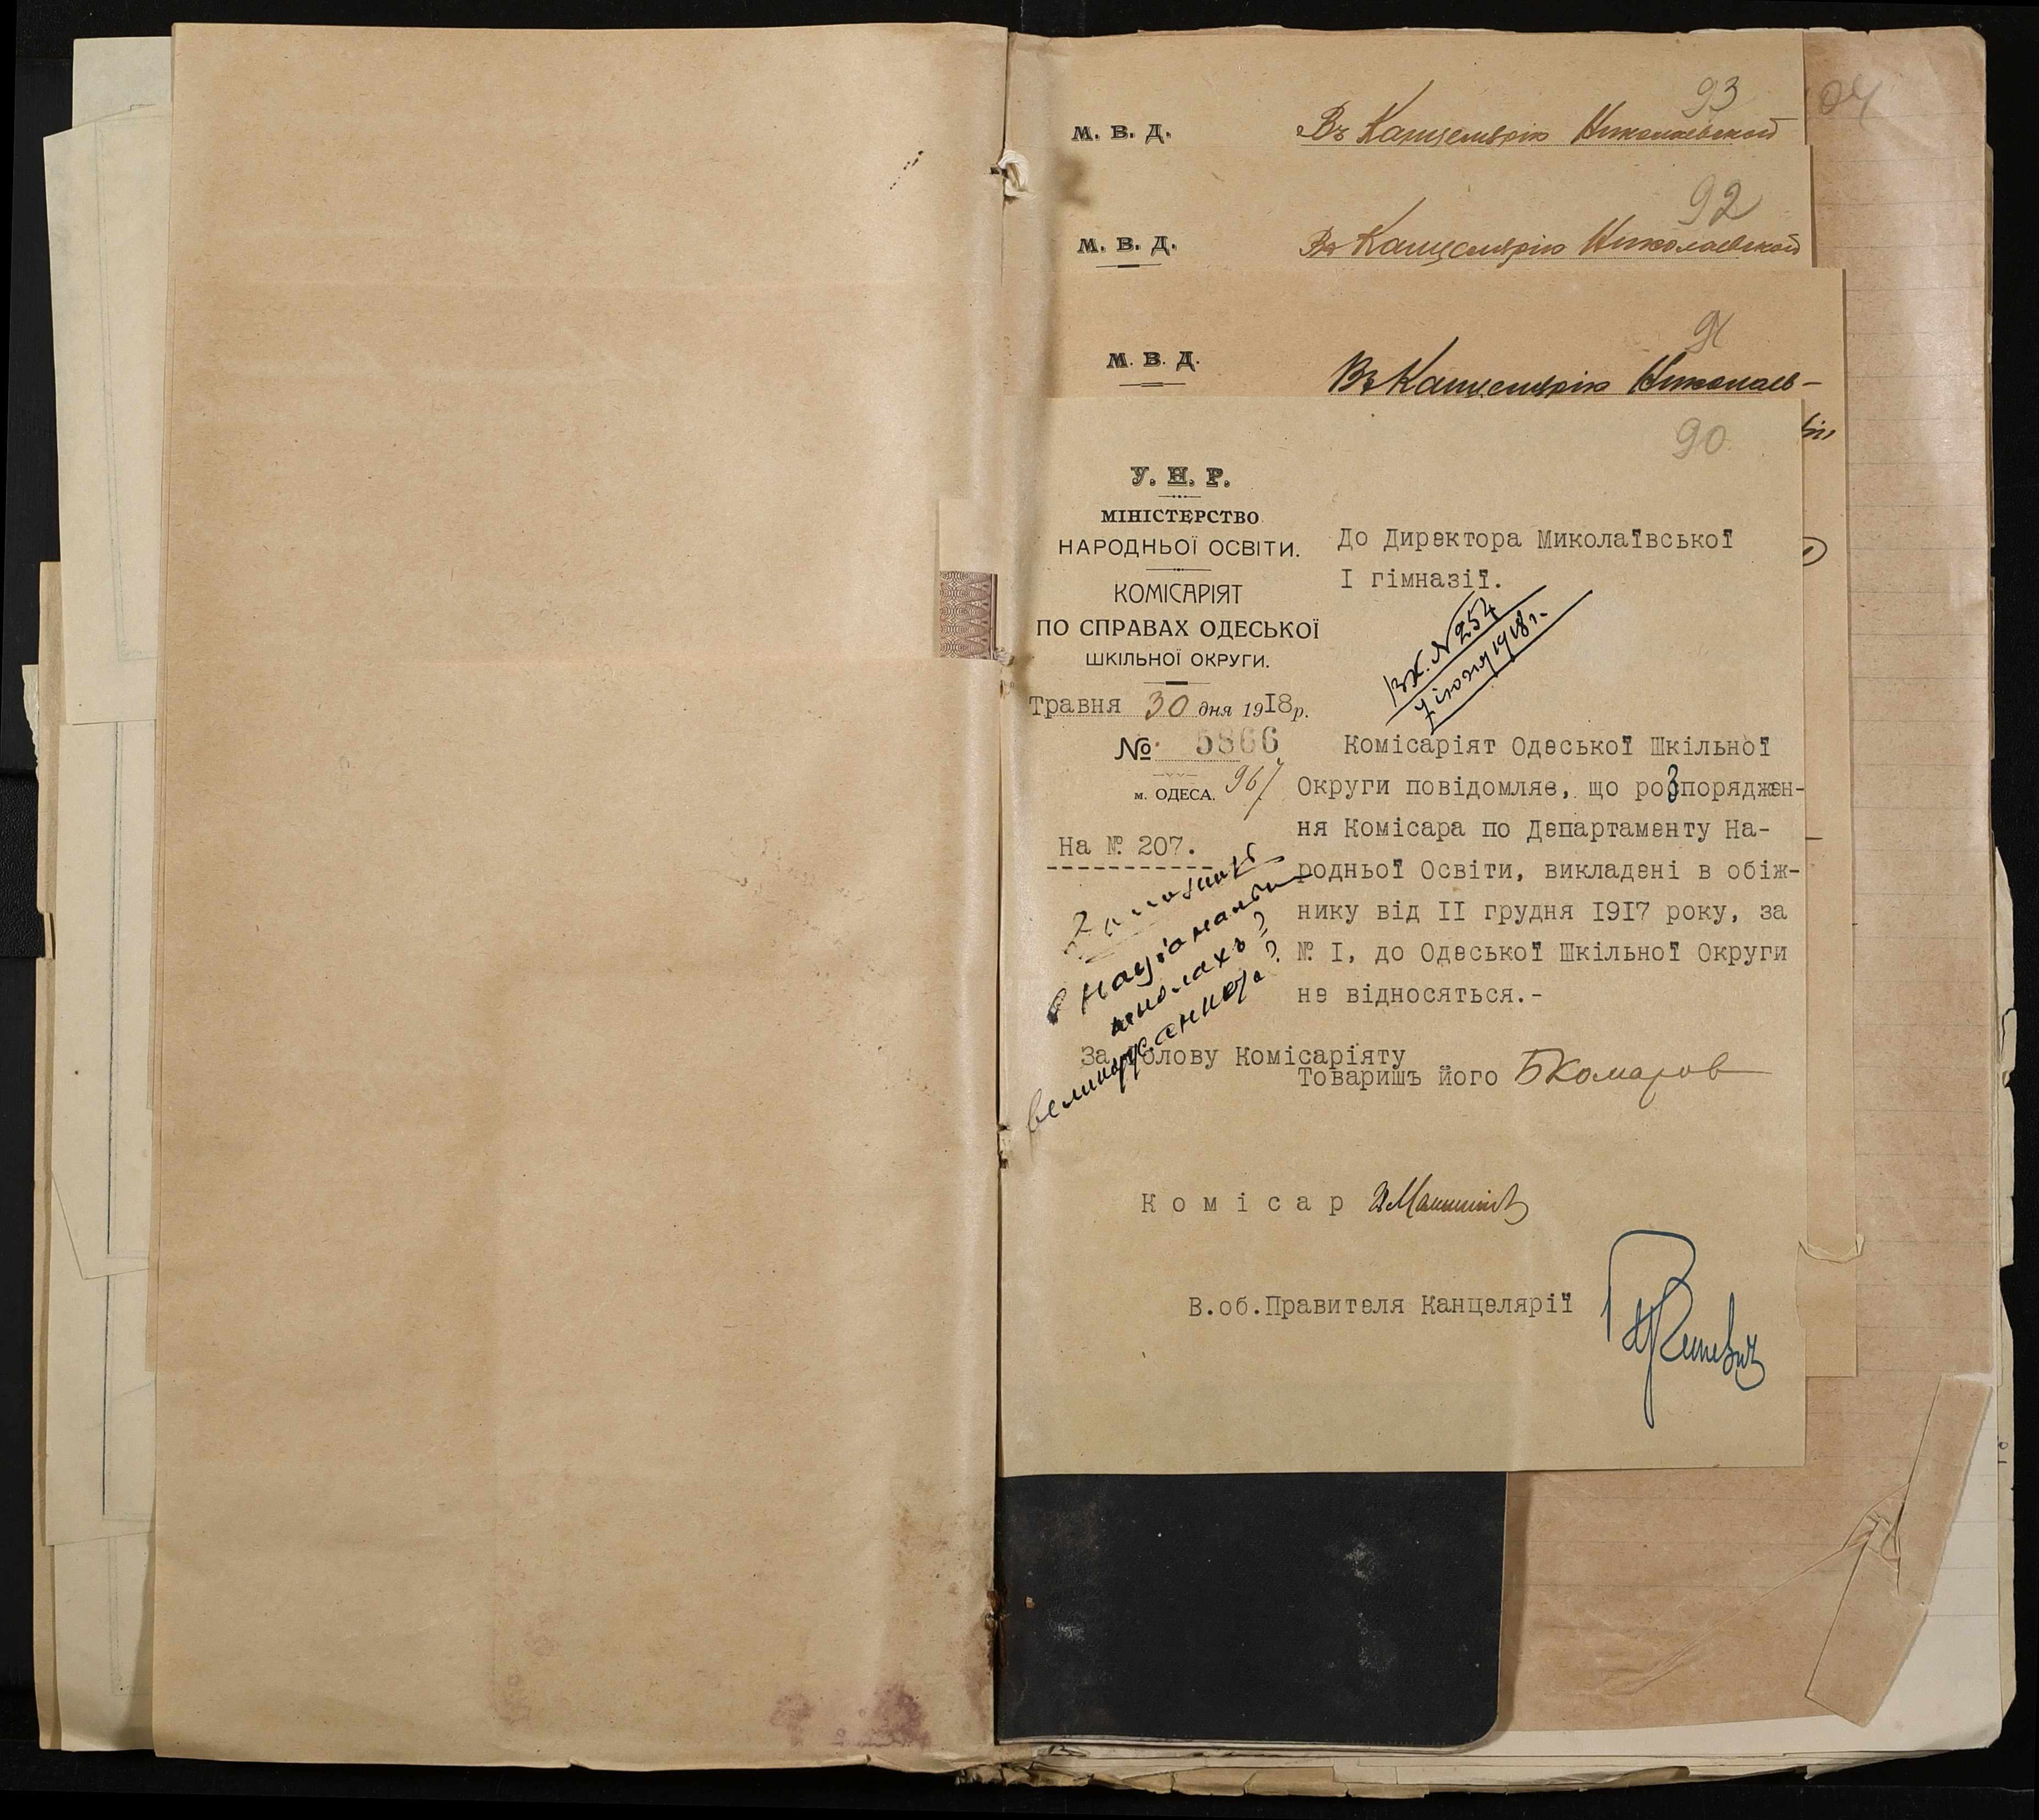 93
М. В. Д.
Въ Канцелярію Николаевской
04
92
М. В. Д.
Въ Канцелярію Николаевской
91
М. В. Д.
Въ Канцелярію Николаев-
90
У. Н. Р.
МІНІСТЕРСТВО
НАРОДНЬОЇ ОСВІТИ.
КОМІСАРІЯТ
ПО СПРАВАХ ОДЕСЬКОЇ
ШКІЛЬНОЇ ОКРУГИ.
Травня 30 дня 1918 р.
№ 5866
967
м. ОДЕСА.
На № 207.
До Директора Миколаївської
І гімназії.
Вх. N 254
7 іюня 1918 г.
Комісаріят Одеської Шкільної
Округи повідомляє, що розпоряджен-
ня Комісара по Департаменту На-
родньої Освіти, викладені в обіж-
нику від II грудня I9I7 року, за
№ I, до Одеської Шкільної Округи
не відносяться.-
о націонал
школахъ?
За Голову Комісаріяту
Товаришъ його БКомаров
Комісар
В.об.Правителя Канцелярії